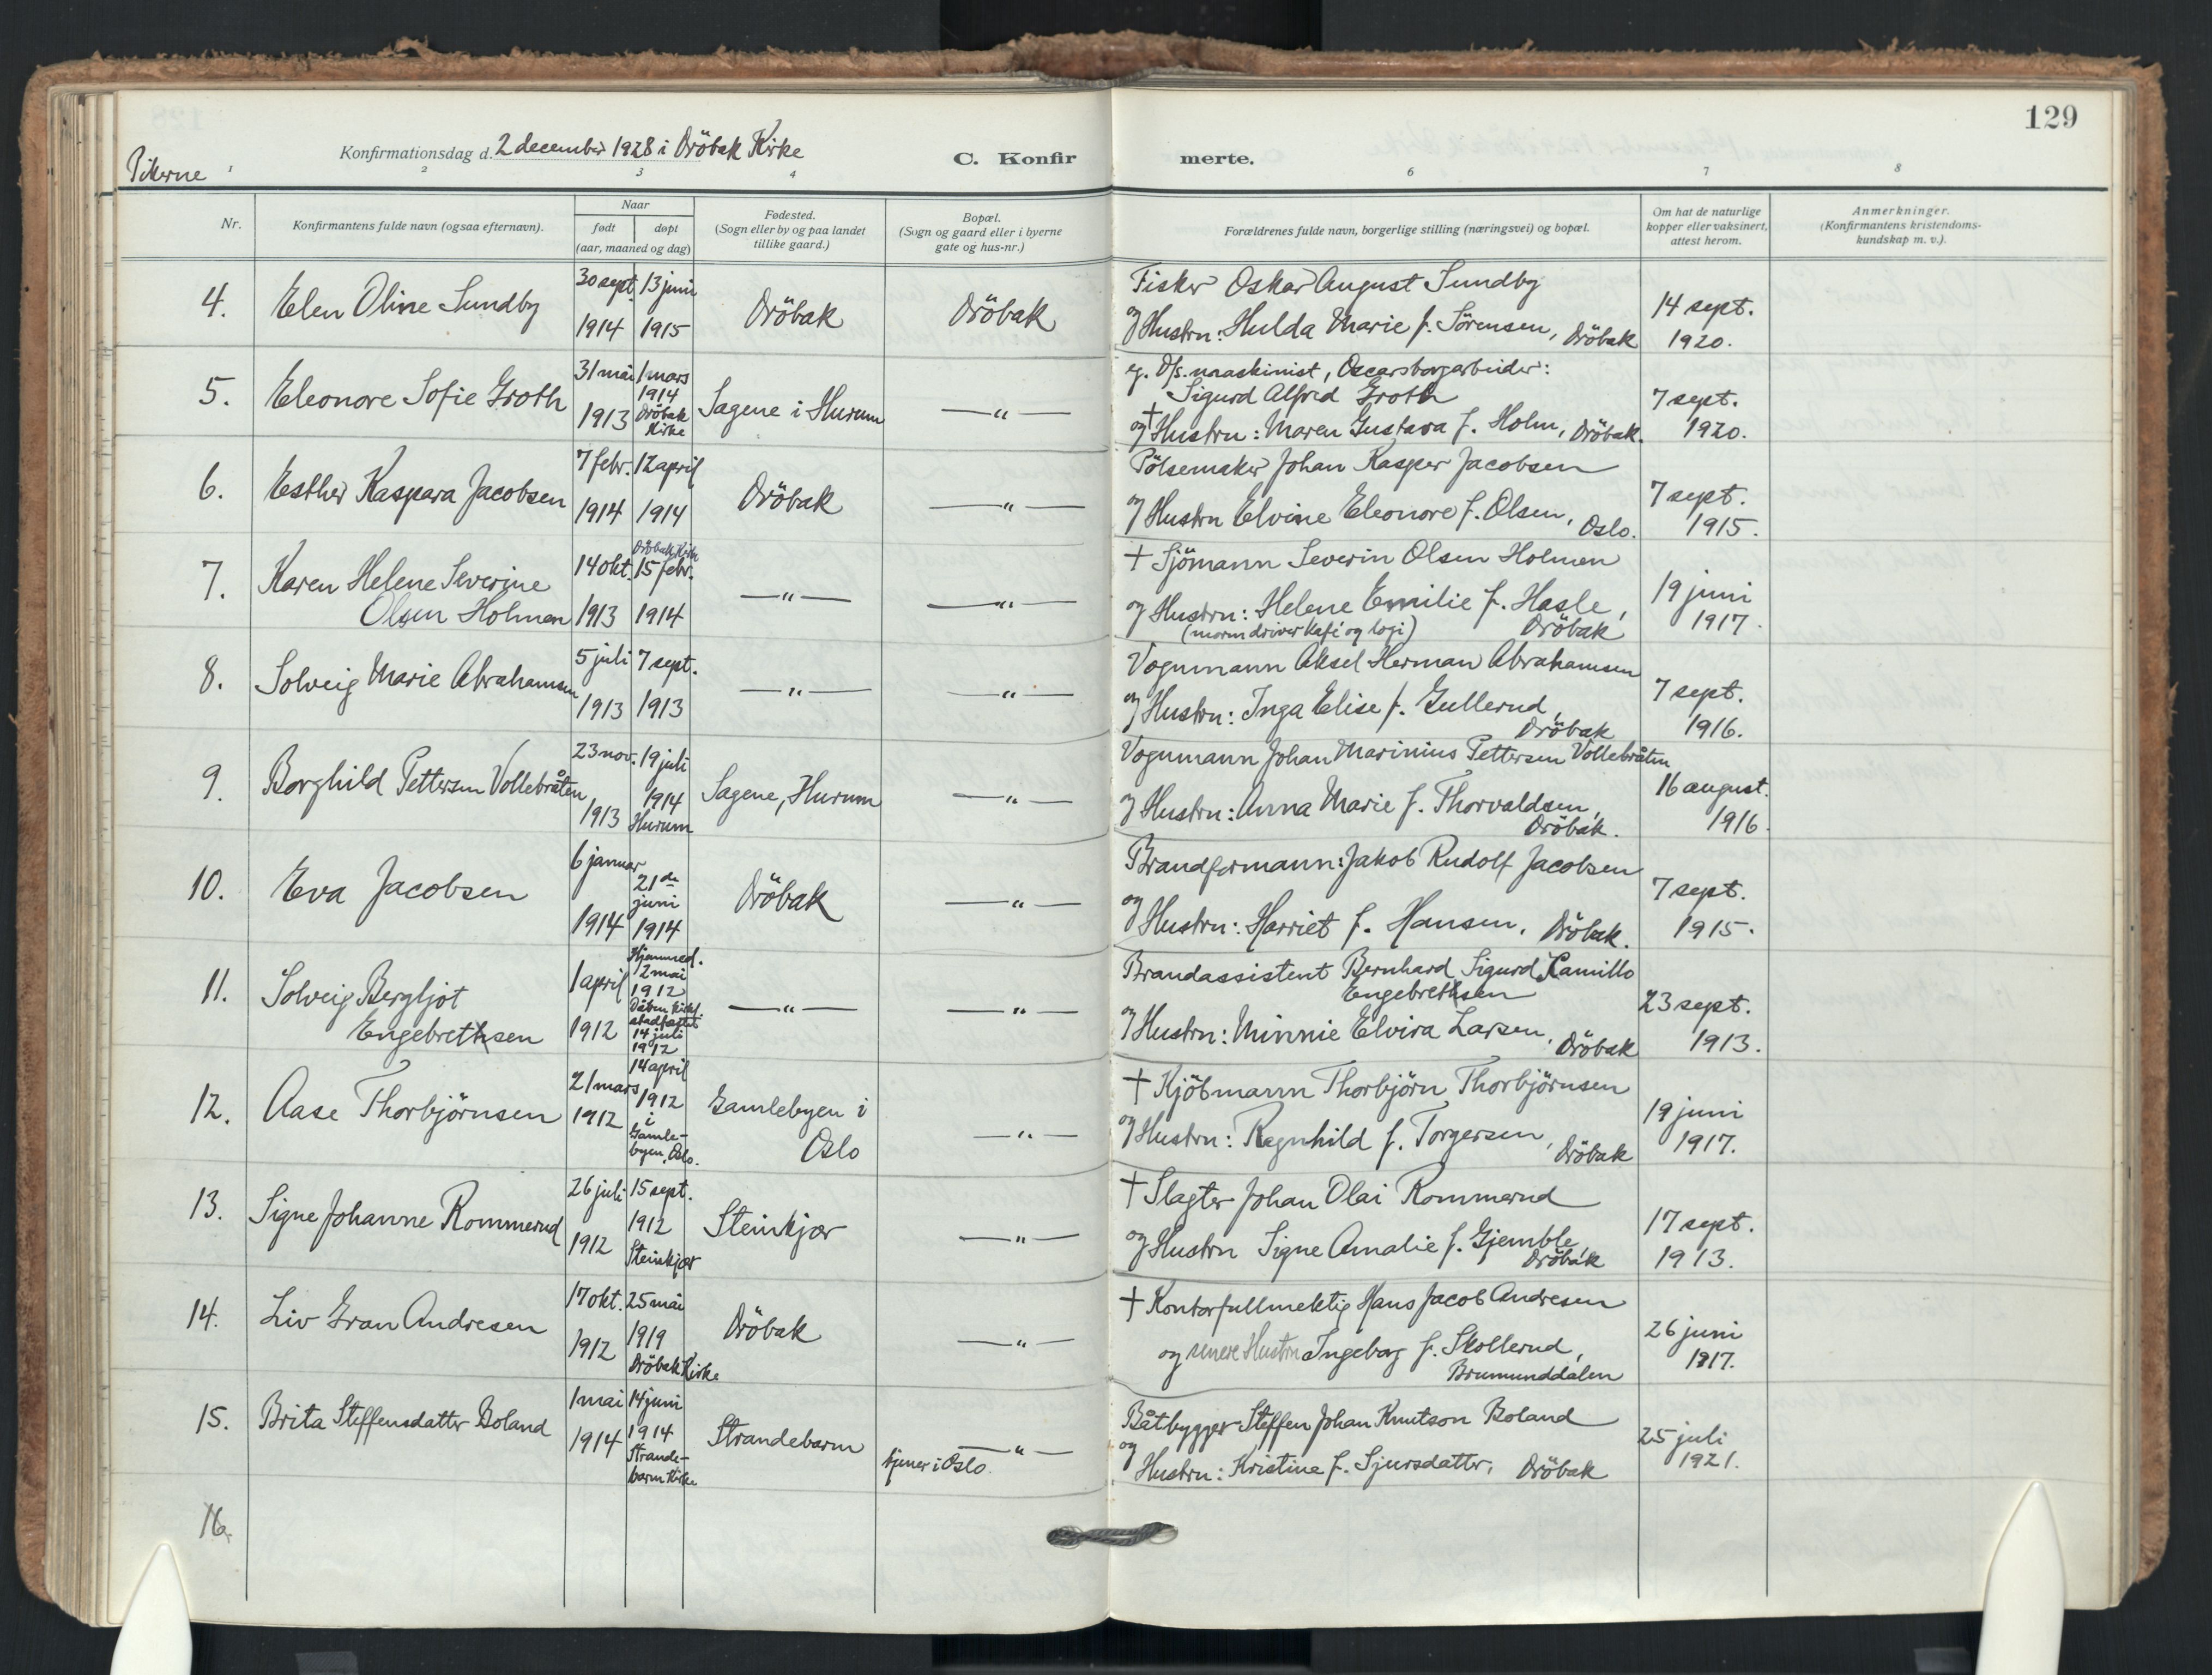 129
Konfirmationsdag d. 2 december 1928 i Dröbak Kirke
C. Konfirmerte.
Pikerne
1 2 3 4 6 7 8
Nr.
Konfirmantens fulde navn (ogsaa efternavn).
Naar
født døpt
(aar, maaned og dag)
Fødested.
(Sogn eller by og paa landet
tillike gaard.)
Bopæl.
(Sogn og gaard eller i byerne
gate og hus-nr.)
Forældrenes fulde navn, borgerlige stilling (næringsvei) og bopæl.
Om hat de naturlige
kopper eller vaksinert,
attest herom.
Anmerkninger.
(Konfirmantens kristendoms-
kundskap m. v.).
4. Elen Oline Sundby
30 sept. 1914
13 juni 1915
Dröbak
Dröbak
Fisker Oskar August Sundby
og Hustru: Hulda Marie f. Sørensen, Dröbak
14 sept.
1920.
5. Eleonore Sofie Groth
31 mai 1913
1 mars
1914
Dröbak
Kirke
Sagene i Hurum
—〃—
eg. D/s. maskinist, Oscarsborgarbeider:
Sigurd Alfred Groth
og † Hustru: Maren Gustava f. Holm, Dröbak.
7 sept.
1920.
6. Esther Kaspara Jacobsen
7 febr. 1914
12 april 1914
Dröbak
—〃—
Pölsemaker Johan Kasper Jacobsen
og Hustru Elvine Eleonore f. Olsen, Oslo.
7 sept.
1915.
7. Karen Helene Severine
Olsen Holmen
14 okt. 1913
Dröbak Kirke
15 febr.
1914
—〃—
—〃—
† Sjömann Severin Olsen Holmen
og Hustru: Helene Emilie f. Hasle,
(morm driver Kafé og logi) Dröbak
19 juni
1917.
8. Solveig Marie Abrahamsen
5 juli 1913
7 sept. 1913
—〃—
—〃—
Vognmann Aksel Herman Abrahamsen
og Hustru: Inga Elise f. Gullerud,
Dröbak
7 sept.
1916.
9. Borghild Pettersen Vollebråten
23 nov. 1913
19 juli
1914
Hurum
Sagene, Hurum
—〃—
Vognmann Johan Marinius Pettersen Vollebråten
og Hustru: Anna Marie f. Thorvaldsen,
Dröbak.
16 august.
1916.
10. Eva Jacobsen
6 januar 1914
21de
juni
1914
Dröbak
—〃—
Brandformann: Jakob Rudolf Jacobsen
og Hustru: Harriet f. Hansen, Dröbak.
7 sept.
1915.
11. Solveig Bergljot
Engebrethsen
1 april 1912
Hjemmed.
12 mai
1912
Dåben
stadfæstet
14 juli
1912
—〃—
—〃—
Brandassistent Bernhard Sigurd Kamillo
Engebrethsen
og Hustru: Minnie Elvira Larsen, Dröbak
23 sept.
1913.
12. Aase Thorbjörnsen
21 mars 1912
14 april
1912
i
Gamle-
byen, Oslo.
Gamlebyen i
Oslo
—〃—
† Kjöbmann Thorbjörn Thorbjörnsen
og Hustru: Ragnhild f. Torgersen, Dröbak
19 juni
1917.
13. Signe Johanne Rommerud
26 juli 1912
15 sept.
1912
Steinkjær
Steinkjær
—〃—
† Slagter Johan Olai Rommerud
og Hustru Signe Amalie f. Gjemble,
Dröbak
17 sept.
1913.
14. Liv Gran Andresen
17 okt. 1912
25 mai
1919
Dröbak Kirke
Dröbak
—〃—
† Kontorfullmektig Hans Jacob Andresen
og senere Hustru Ingeborg f. Skollerud,
Brumunddalen
26 juni
1917.
15. Brita Steffensdatter Boland
1 mai 1914
14 juni
1914
Strande-
barm Kirke
Strandebarm
—〃—
tjener i Oslo.
Båtbygger Steffen Johan Knutson Boland
og
Hustru: Kristine f. Sjursdatter, Dröbak
25 juli
1921.
16.